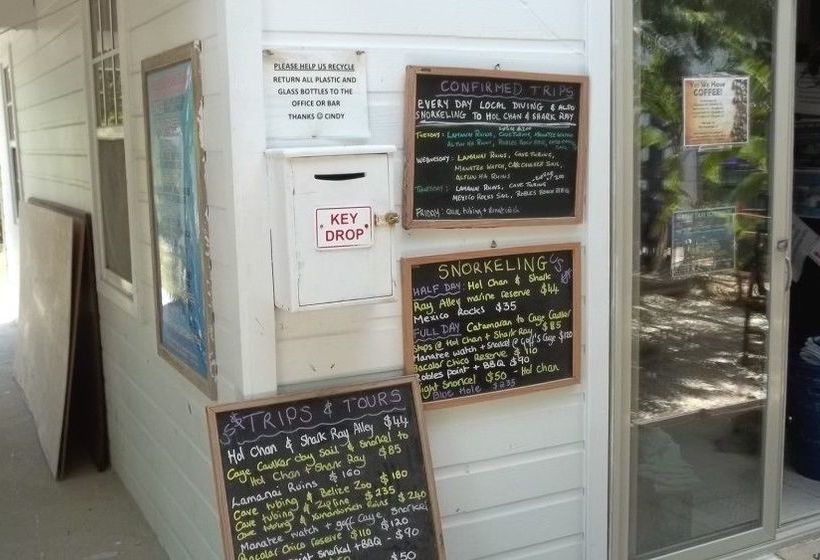 PLEASE HELP US RECYCLE
RETURN ALL PLASTIC AND
GLASS BOTTLES TO THE
OFFICE OR BAR
THANKS ☺ CINDY
KEY
DROP
CONFIRMED TRIPS
EVERY DAY LOCAL DIVING & ALSO
SNORKELING TO HOL CHAN & SHARK RAY
TUESDAY: LAMANAI RUINS, CAVE TUBING, MANATEE WATCH
ALTUN HA RUINS, ROBLES POINT BBQ
WEDNESDAY: LAMANAI RUINS, CAVE TUBING,
MANATEE WATCH, CAYE CAULKER SAIL,
ALTUN HA RUINS
LAMANAI RUINS, CAVE TUBING
MEXICO ROCKS SAIL, ROBLES POINT BBQ
FRIDAY: Cave tubing +
SNORKELING
US
HALF DAY: Hol Chan & Shark
Ray Alley marine reserve $44
Mexico Rocks $35
FULL DAY Catamaran to Caye Caulker
Stops @ Hol Chan & Shark Ray $85
Manatee watch + Snorkel @ Goff's Caye $120
Bacalar Chico Reserve $110
Robles point + BBQ $90
Night Snorkel $50 - Hol chan
Blue Hole $235
TRIPS & TOURS
Hol Chan & Shark Ray Alley $44
Caye Caulker day Sail & Snorkel to
Hol Chan & Shark Ray $85
Lamanai Ruins $160
Cave tubing & Belize Zoo $180
Cave tubing & Zip line $235
Cave tubing & Xunantunich Ruins $240
Manatee watch + goff Caye Snorkel
$120
Bacalar Chico reserve $110
point Snorkel + BBQ - $90
$50
Yes We Have
COFFEE!